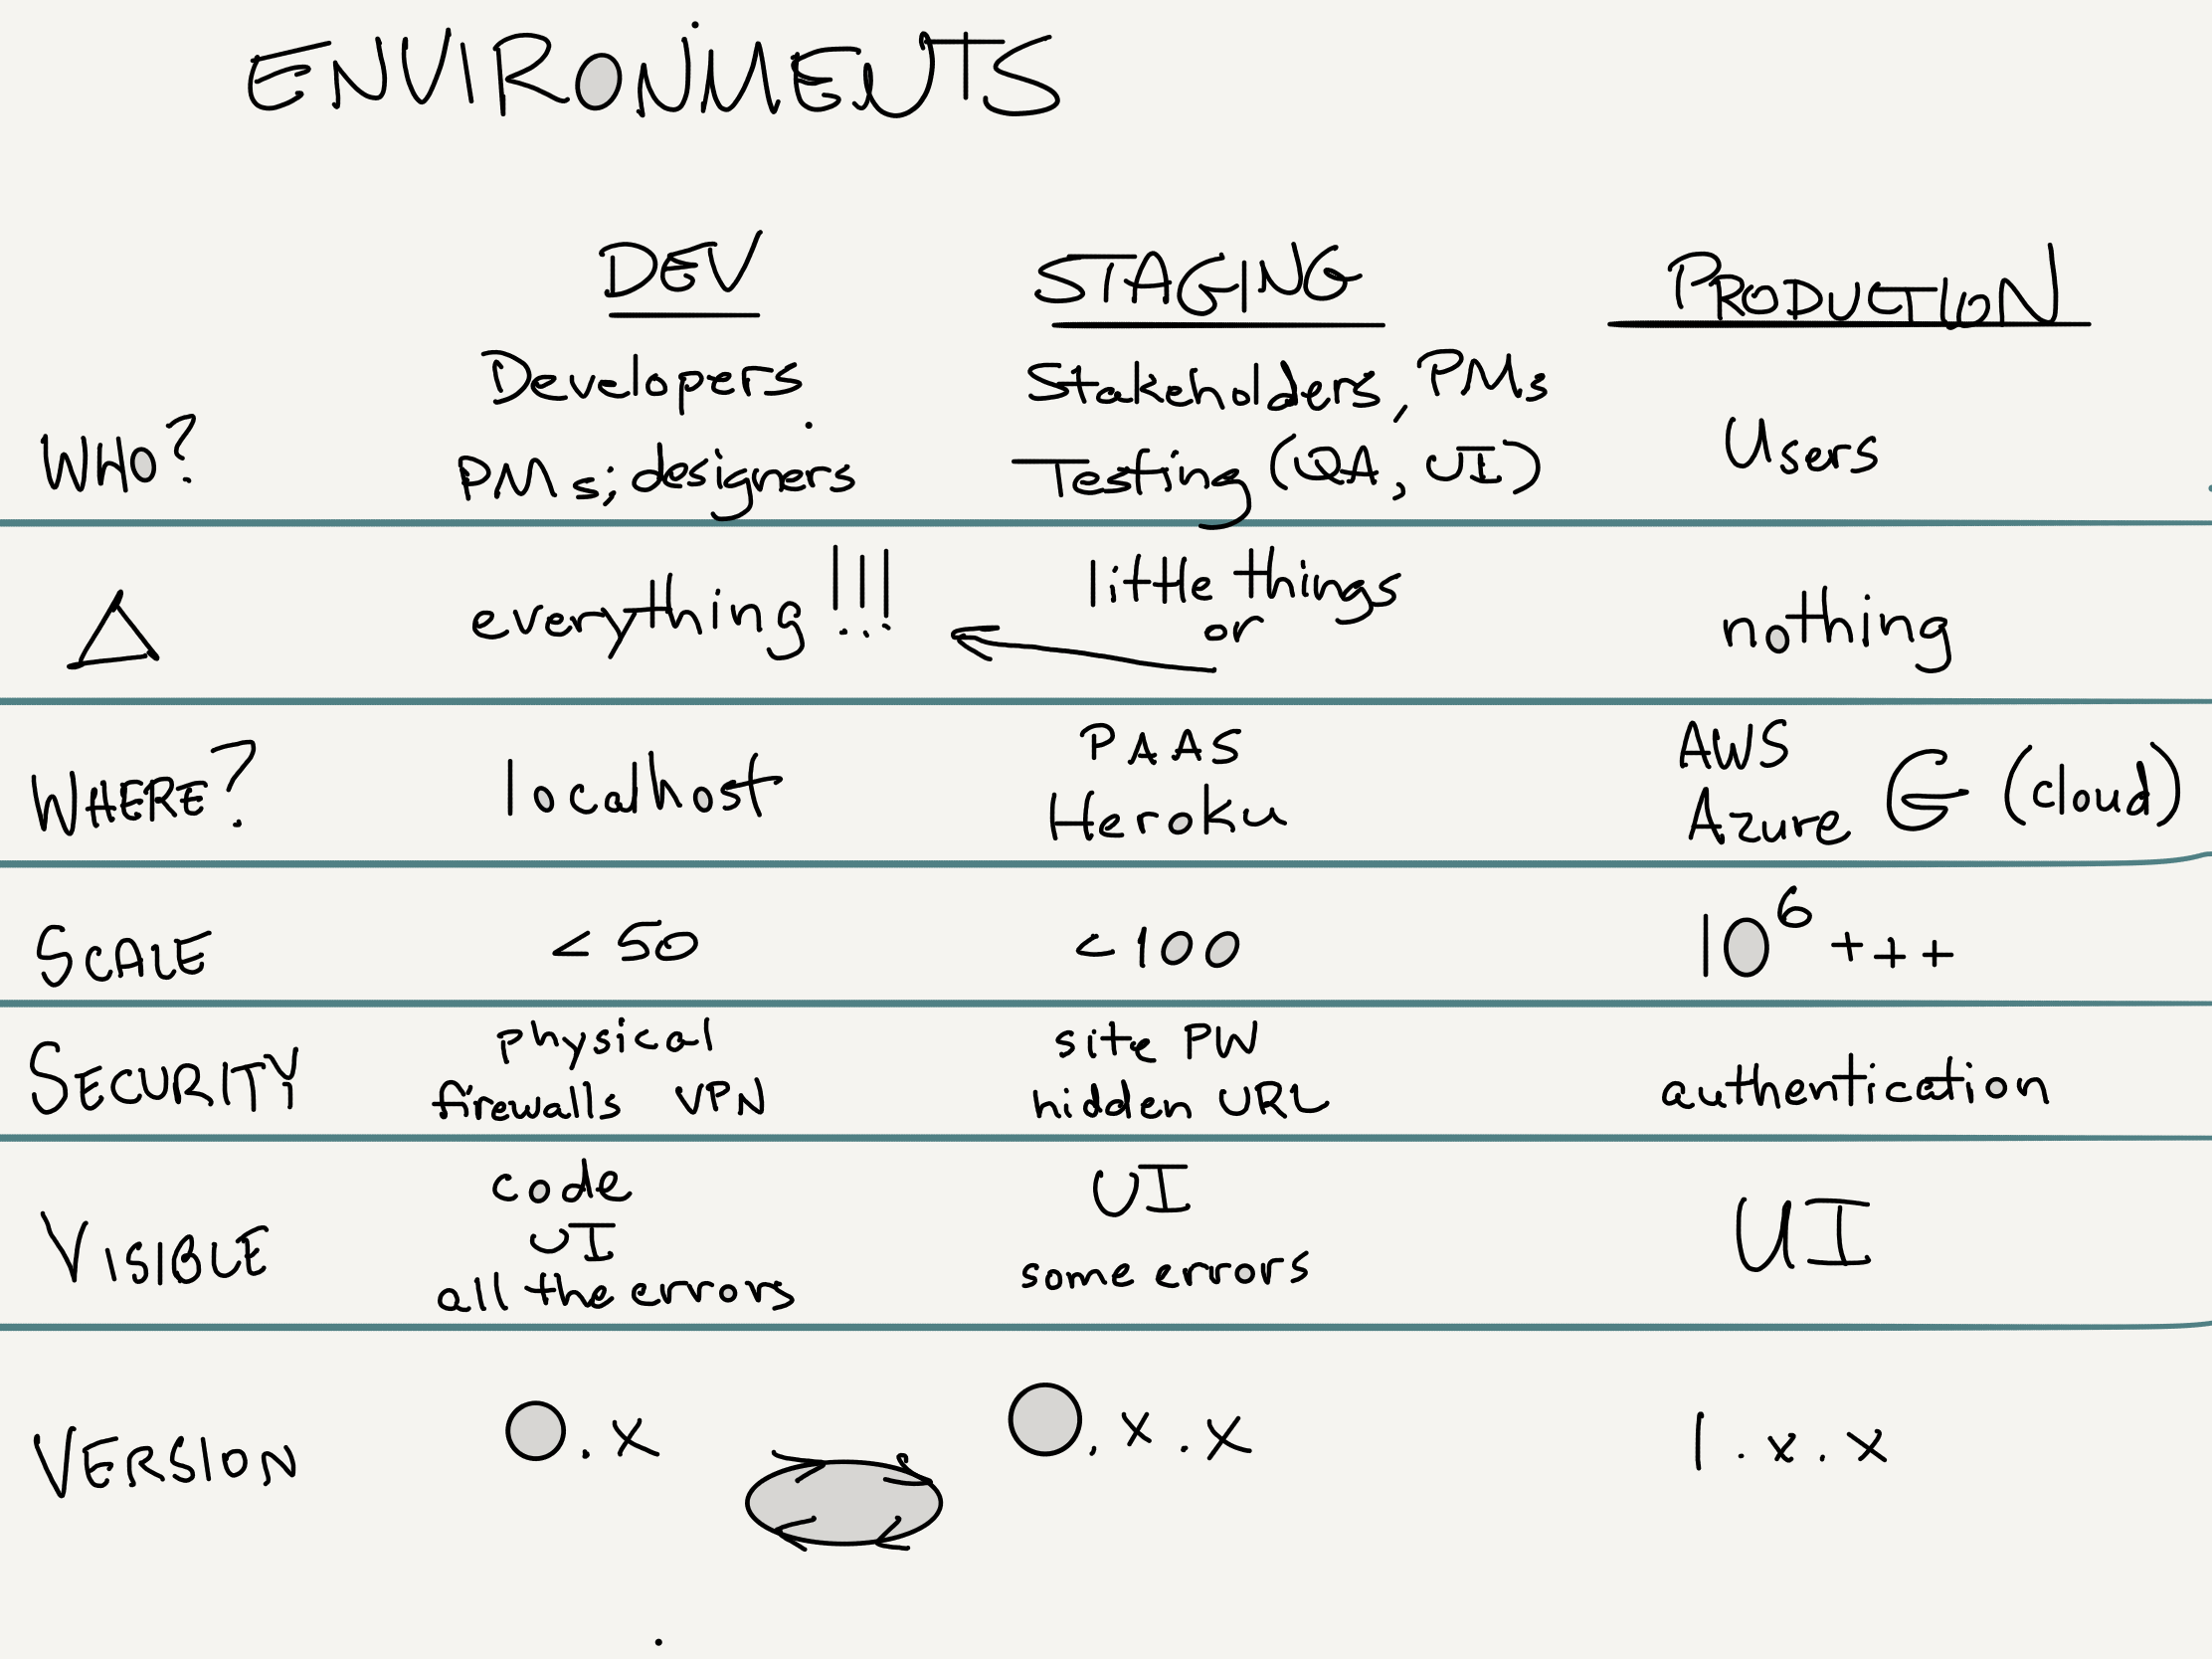 ENVIRONMENTS
DEV STAGING PRODUCTION
WHO?
Developers
PMs; designers
Stakeholders, PMs
Testing (QA, UI)
Users
△
everything!!!
little things
or
nothing
WHERE?
localhost
PAAS
Heroku
AWS
Azure G (cloud)
SCALE < 50 < 100 10⁶ +++
SECURITY
physical
firewalls VPN
site PW
hidden URL
authentication
VISIBLE
code
UI
all the errors
UI
some errors
UI
VERSION 0.x 0.x.x 1.x.x